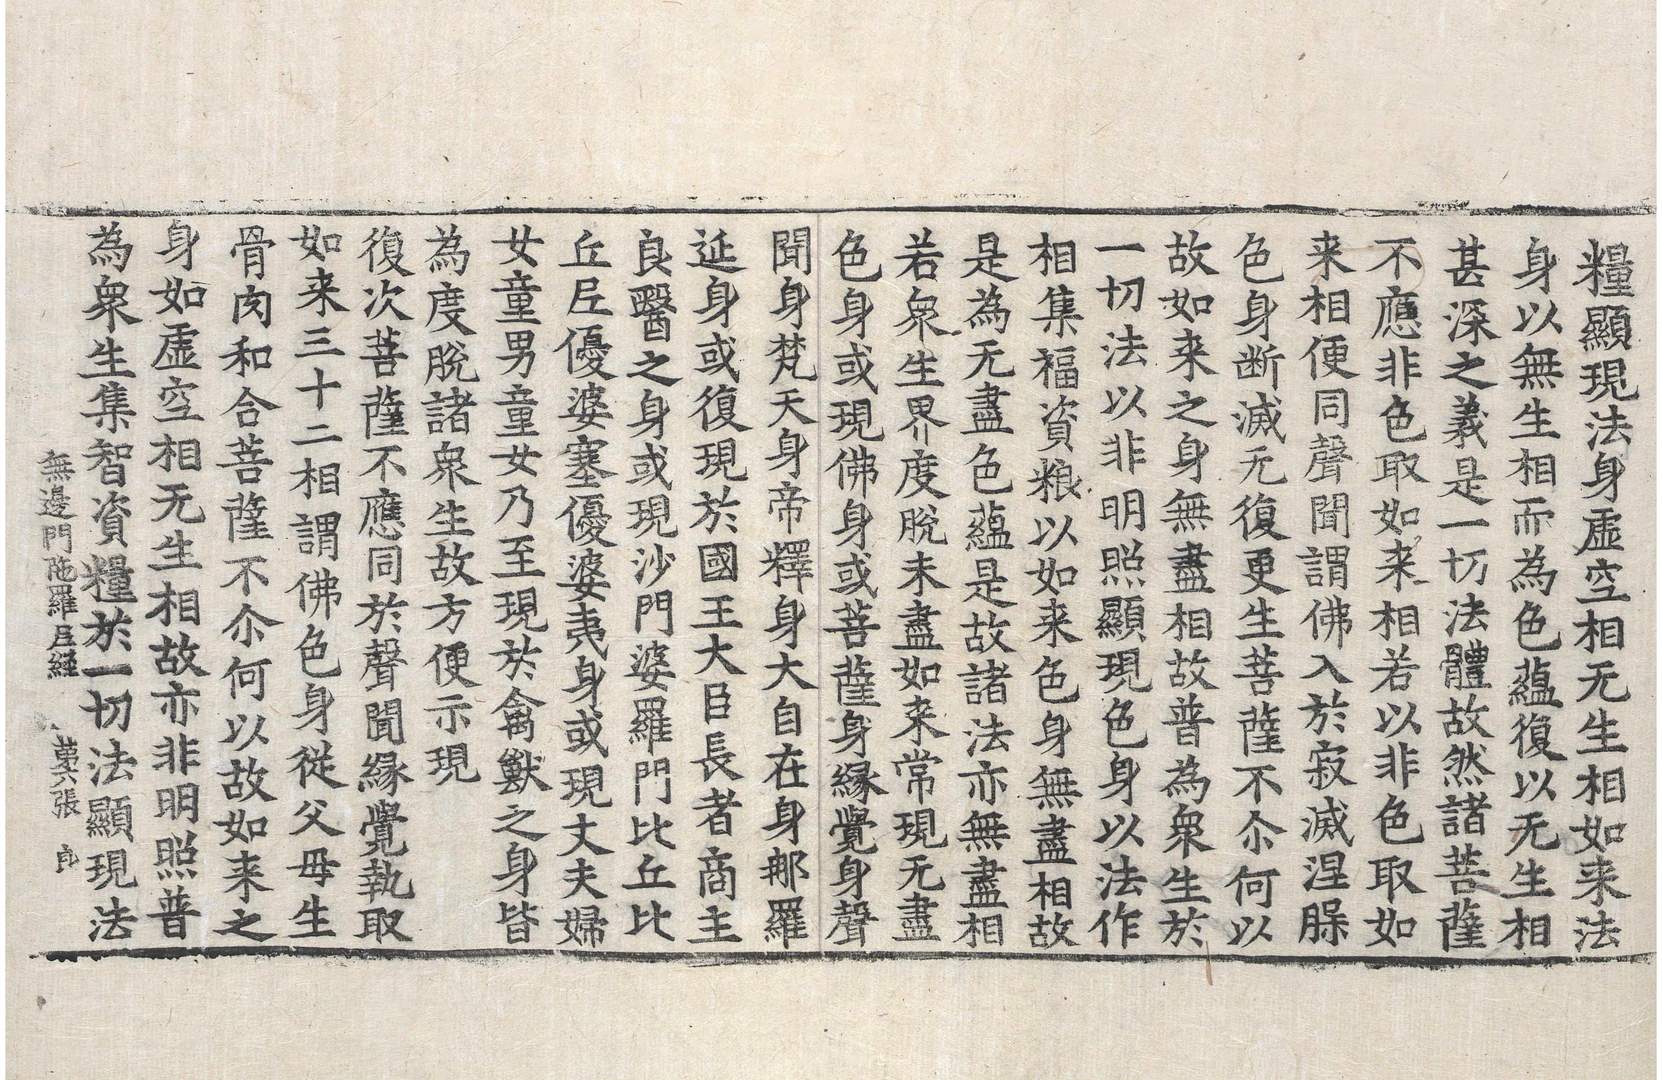 糧顯現法身虛空相无生相如来法
身以無生相而為色蘊復以无生相
甚深之義是一切法體故然諸菩薩
不應非色取如来相若以非色取如
来相便同聲聞謂佛入於寂滅涅槃
色身断滅无復更生菩薩不尒何以
故如来之身無盡相故普為衆生於
一切法以非明照顯現色身以法作
相集福資粮以如来色身無盡相故
是為无盡色蘊是故諸法亦無盡相
若衆生界度脫未盡如来常現无盡
色身或現佛身或菩薩身緣覺身聲
聞身梵天身帝釋身大自在身郍羅
延身或復現於國王大臣長者商主
良醫之身或現沙門婆羅門比丘比
丘尼優婆塞優婆夷身或現丈夫婦
女童男童女乃至現於禽獸之身皆
為度脫諸衆生故方便示現
復次菩薩不應同於聲聞緣覺執取
如来三十二相謂佛色身從父母生
骨肉和合菩薩不尒何以故如来之
身如虛空相无生相故亦非明照普
為衆生集智資糧於一切法顯現法
無邊門陁羅尼經 苐六張 良